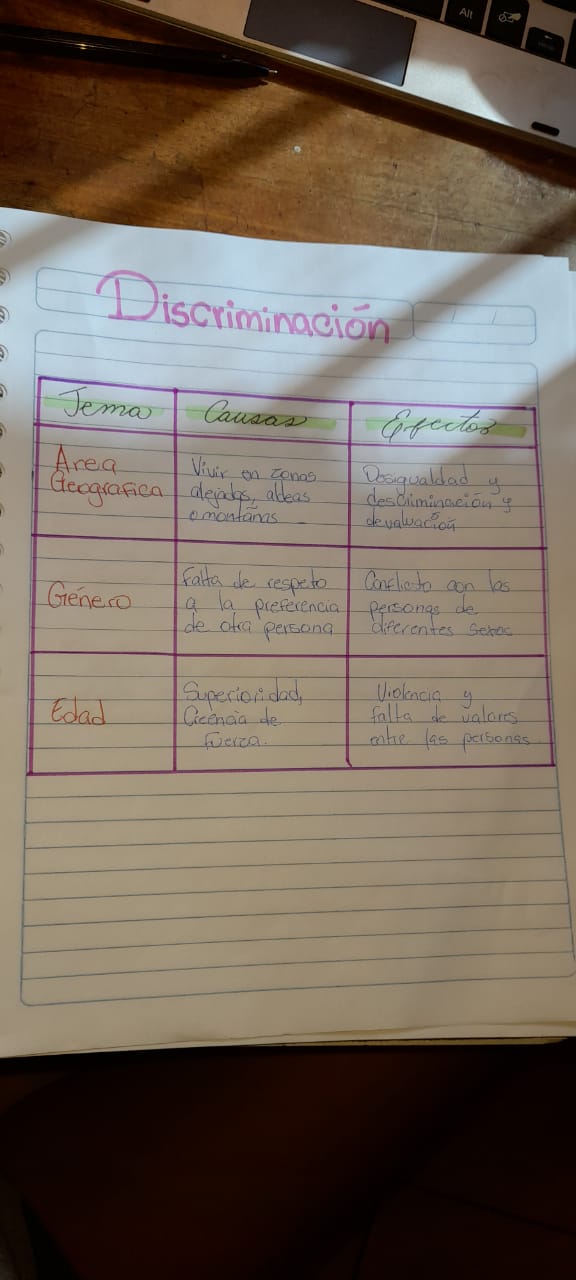 Alt
Discriminación
Tema
Causas
Efectos
Area
Geografica
Vivir en zonas
alejados, aldeas
o montañas
Desigualdad y
descriminación y
devaluación
Género
Falta de respeto
a la preferencia
de otra persona
Conflicto con las
personas de
diferentes sexos
Edad
Superioridad,
Creencia de
Fuerza.
Violencia y
falta de valores
entre las personas